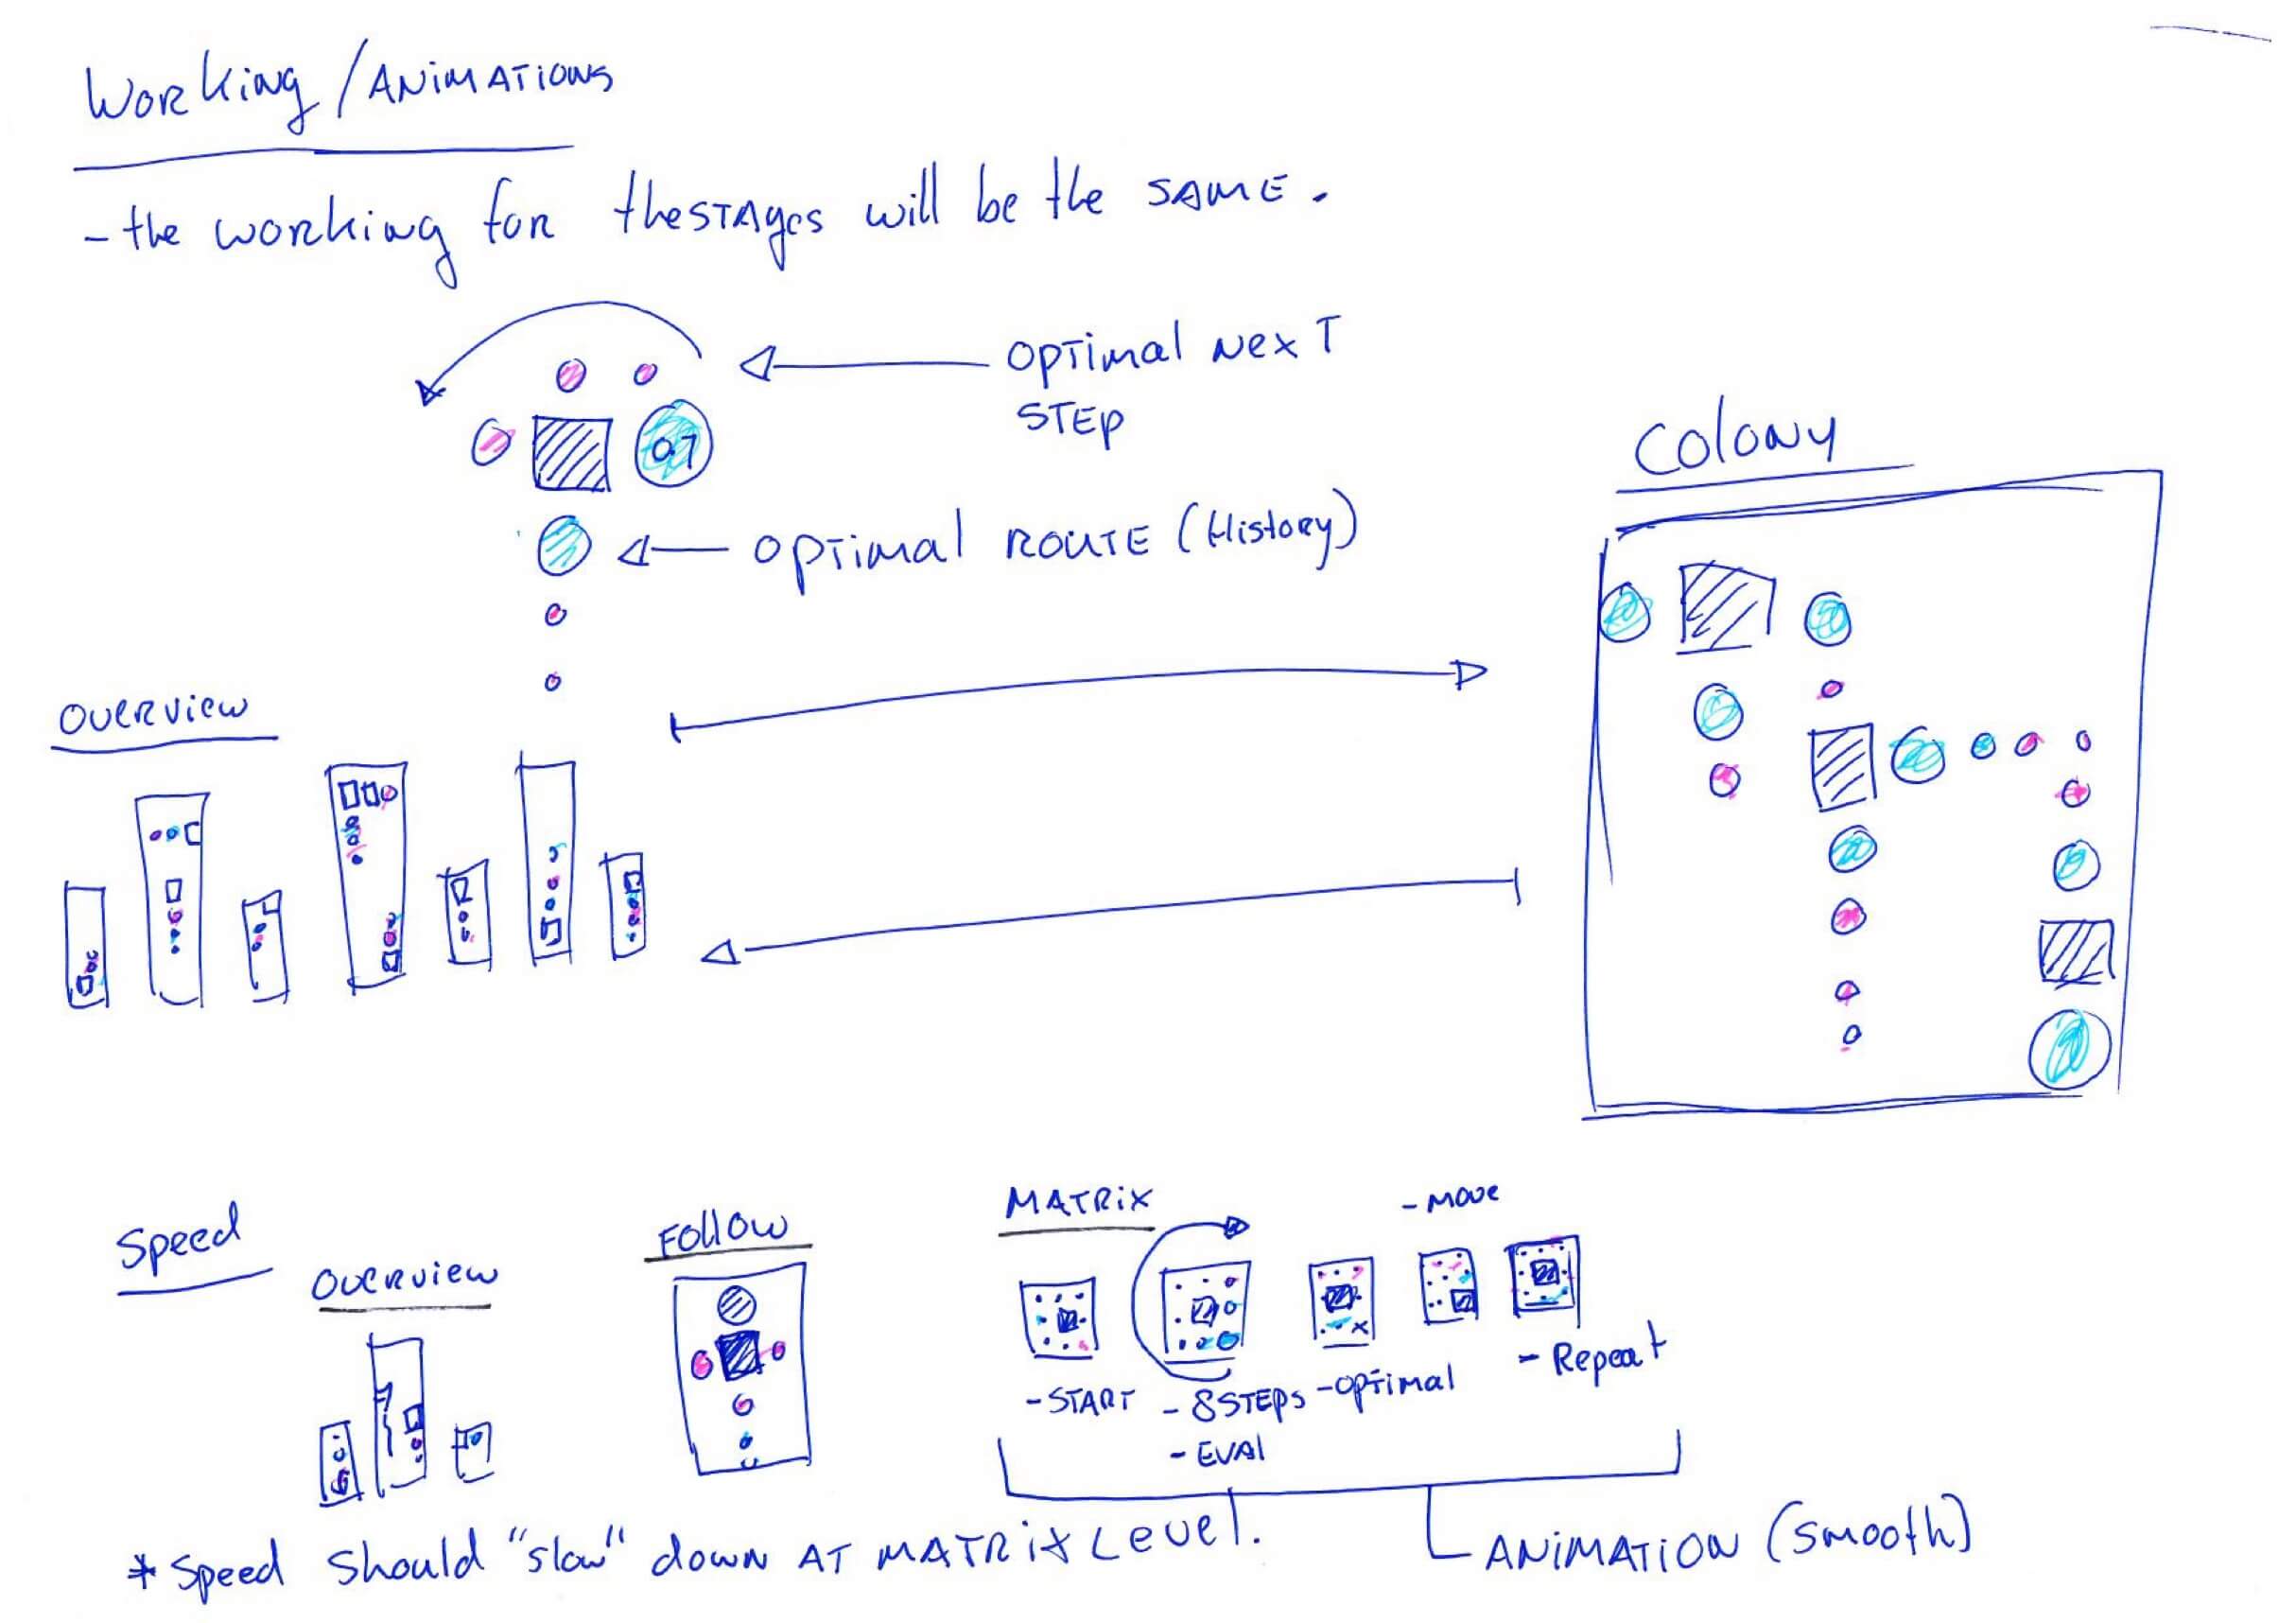 Working/Animations
- the working for the stages will be the same.
optimal next
step
0.7
optimal route (History)
Colony
overview
Speed
overview
Follow
Matrix
- move
- Start
- 8 steps
- Eval
- optimal
- Repeat
* Speed should "slow" down at matrix level.
Animation (smooth)